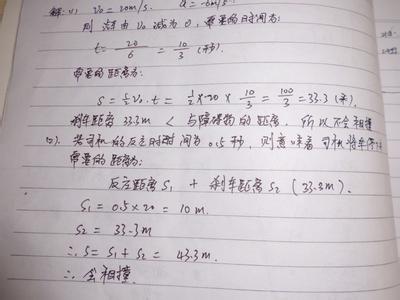 解: (1) V₀ = 20m/s. a = -6m/s²
则 汽车由 V₀ 减为 0, 需要的时间为:
t = 20/6 = 10/3 (秒).
需要的距离为:
S = ½V₀·t = ½×20×10/3 = 100/3 = 33.3 (米).
刹车距离 33.3m < 与障碍物的距离, 所以不会相撞
(2). 若司机的反应时间为 0.5秒, 则意味着 司机将车停
需要的距离为:
反应距离 S₁ + 刹车距离 S₂ (33.3m).
S₁ = 0.5×20 = 10m.
S₂ = 33.3m
∴ S = S₁ + S₂ = 43.3m.
∴ 会相撞.